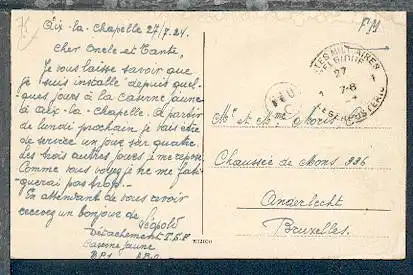 Aix-la-Chapelle 27/7.24.
Cher Oncle et Tante,
Je vous laisse savoir que
je suis installé depuis quel-
ques jours à la caserne jaune
à Aix-la-Chapelle. A partir
de lundi prochain je vais être
de service un jour sur quatre
les trois autres jours je me repose
Comme vous voyez je ne me fati-
guerai pas trop.
En attendant de vous revoir
recevez un bonjour de
Léopold
Détachement
Caserne jaune
FM
POSTES MILITAIRES
BELGIQUE
27
7-8
1
Mr et Mme
Chaussée de Mons 226
Anderlecht
Bruxelles.